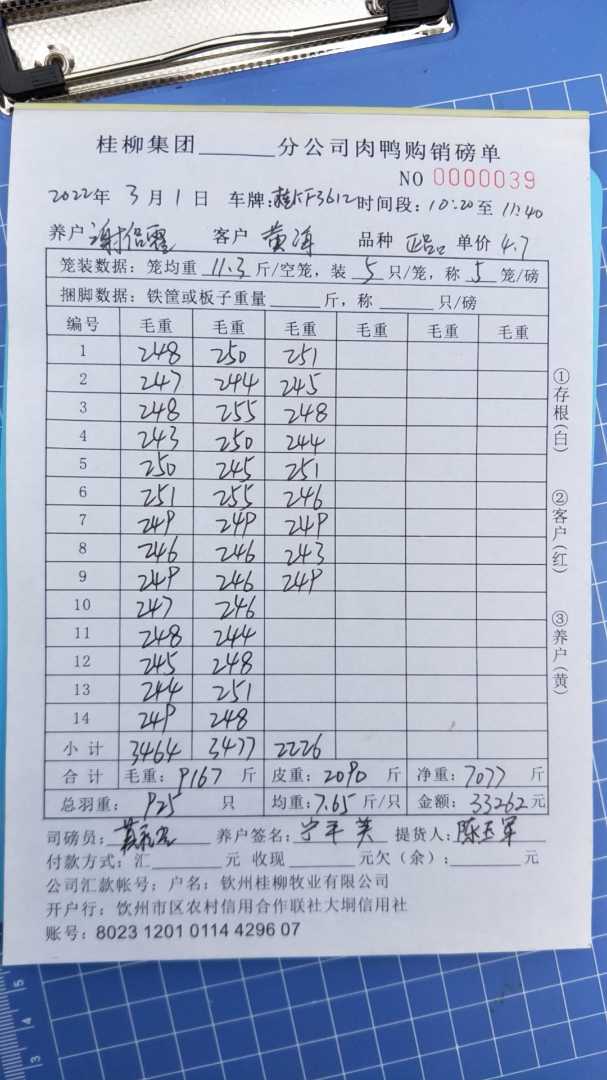 桂柳集团______分公司肉鸭购销磅单
NO 0000039
2022年 3月1日 车牌:桂KF3612 时间段:10:20至11:40
养户 谢 客户 黄海 品种 正品 单价 4.7
笼装数据:笼均重 11.3 斤/空笼,装 5 只/笼,称 5 笼/磅
捆脚数据:铁筐或板子重量______斤,称______只/磅
编号 毛重 毛重 毛重 毛重 毛重 毛重
1 248 250 251
2 247 244 245
3 248 255 248
4 243 250 244
5 250 245 251
6 251 255 246
7 249 249 249
8 246 246 243
9 249 246 249
10 247 246
11 248 244
12 245 248
13 244 251
14 249 248
小计 3464 3477 2226
合计 毛重:9167 斤 皮重:2090 斤 净重:7077 斤
总羽重: 925 只 均重:7.65 斤/只 金额:33262元
司磅员: 养户签名:宁平英 提货人:陈玉军
付款方式:汇______元 收现______元欠(余):______元
公司汇款帐号:户名:钦州桂柳牧业有限公司
开户行:饮州市区农村信用合作联社大垌信用社
账号:8023 1201 0114 4296 07
①存根(白)
②客户(红)
③养户(黄)
5
4
3